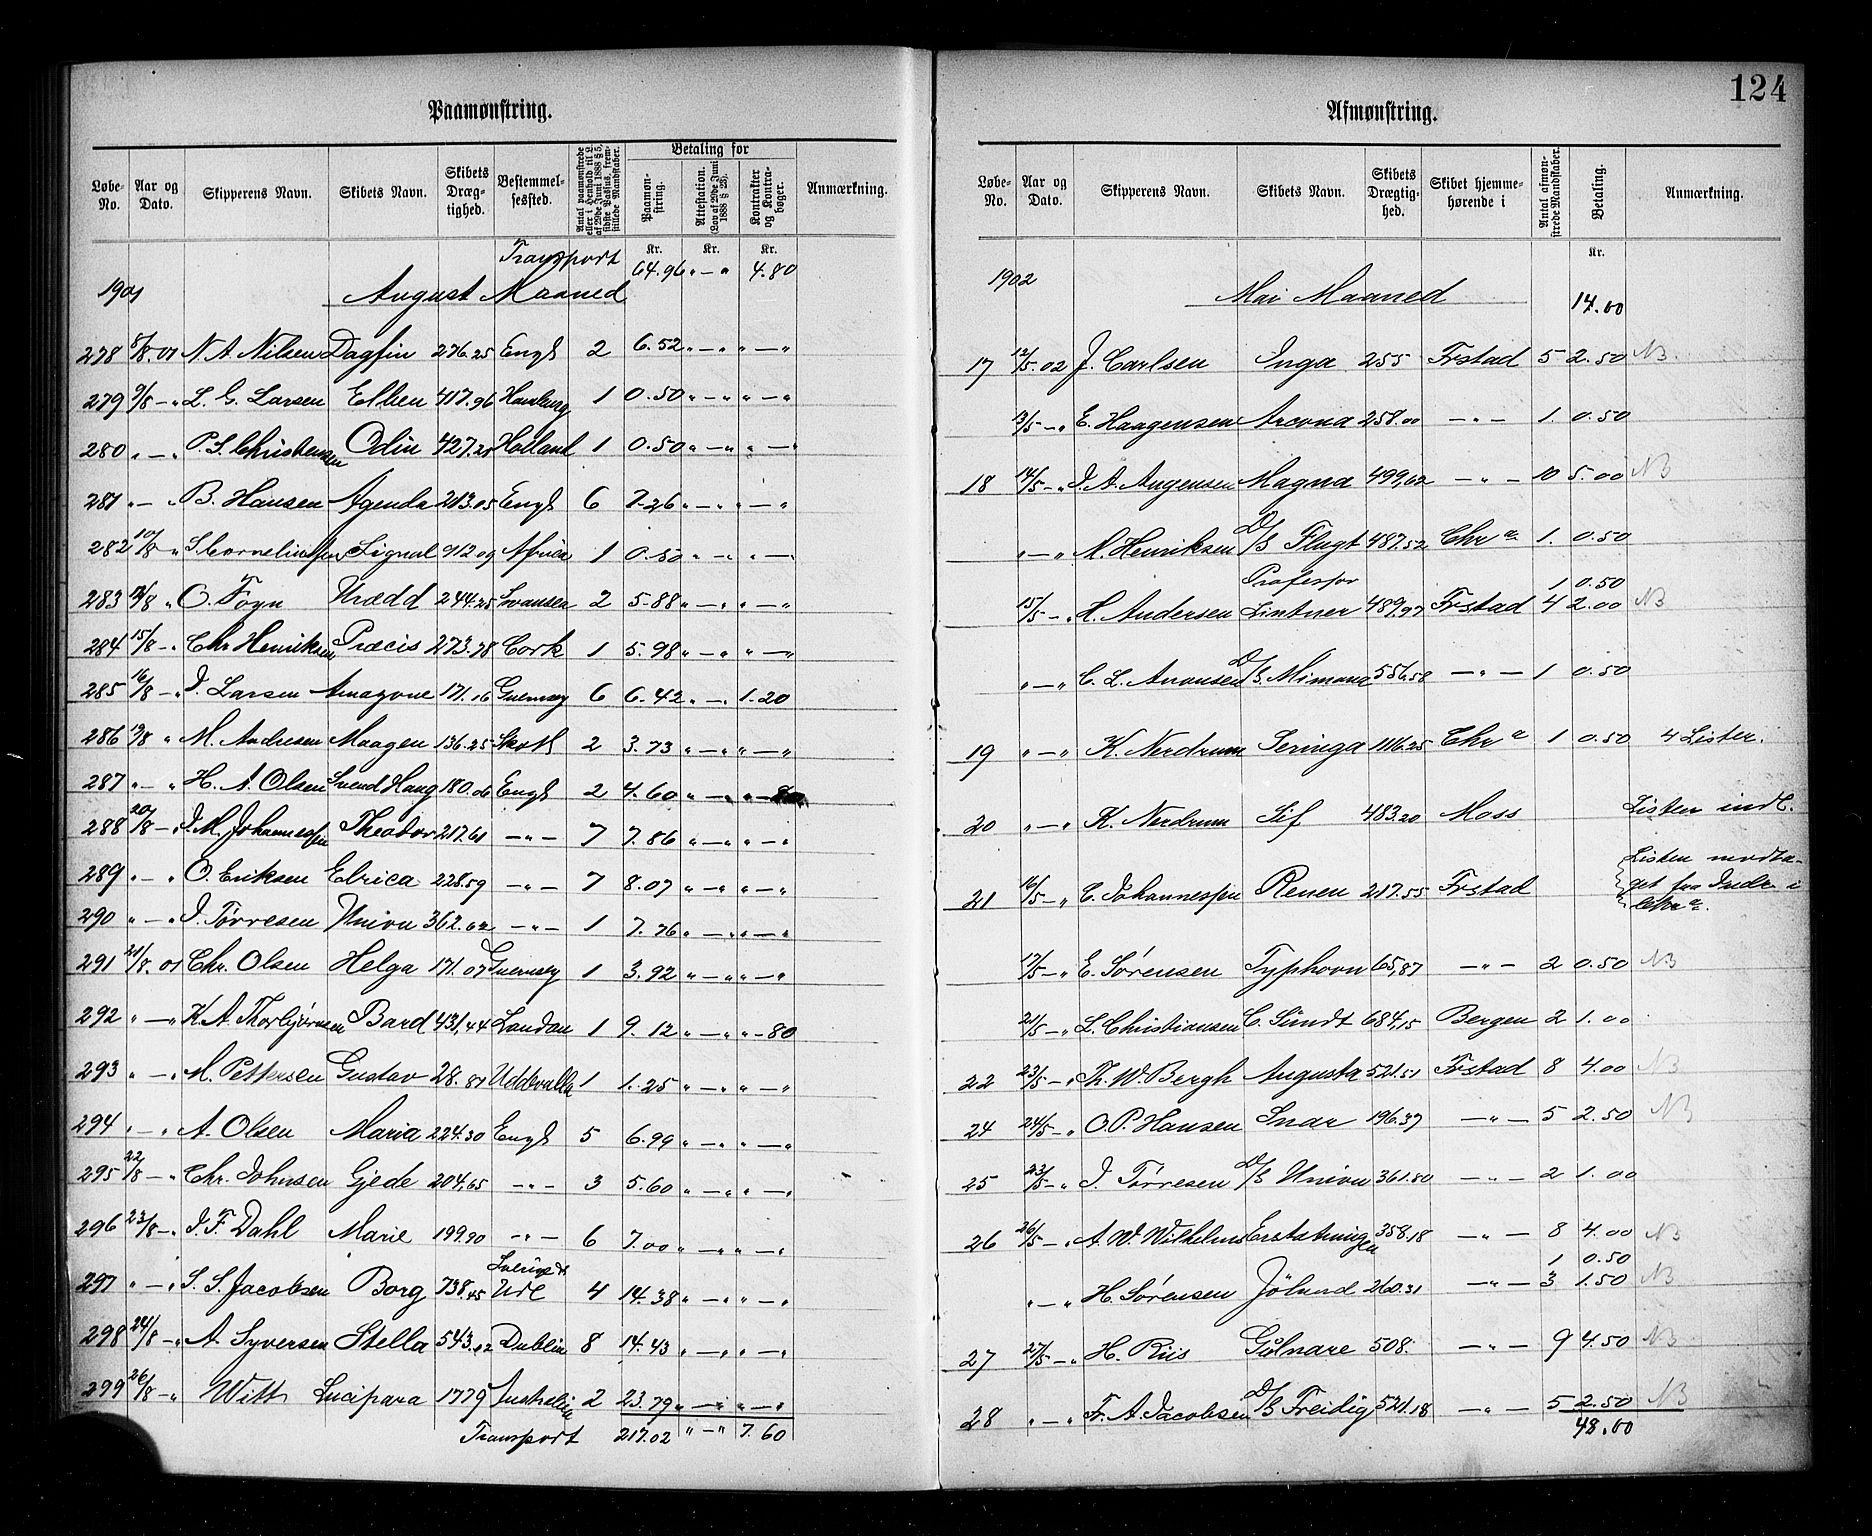 Paamønstring.
Løbe-No. | Aar og Dato. | Skipperens Navn. | Skibets Navn. | Skibets Dræg-tighed. | Bestemmel-sessted. | Antal paamønstrede eller i Henhold til L. af 29de Juni 1888 § 5, sidste Passus, frem-stillede Mandskaber. | Betaling for | Paamøn-string. | Attestation. (Lov af 29de Juni 1888 § 23). | Kontrakter og Kontra-bøger. | Anmærkning.
Kr. Kr. Kr.
Transport 64.96 " — " 4.80
1901 August Maaned
278 8/8. 01 N. A. Nilsen Dagfin 276.25 Engl 2 6.52 " — " " — "
279 9/8 — " L. G. Larsen Ellen 417.96 Hamburg 1 0.50 " — " " — "
280 " — " P. S. Christensen Odin 427.21 Holland 1 0.50 " — " " — "
281 " — " B. Hansen Agenda 213.05 Engl 6 7.26 " — " " — "
282 10/8 — " S. Corneliussen Signal 912.09 Africa 1 0.50 " — " " — "
283 12/8 " O. Foyn Urædd 244.25 Svansea 2 5.88 " — " " — "
284 15/8 — " Chr Henriksen Præcis 273.78 Cork 1 5.98 " — " " — "
285 16/8 — " J. Larsen Amazone 171.16 Guernsey 6 6.42 " — " 1.20
286 19/8 " M. Andresen Maagen 136.25 Skotl 2 3.73 " — " " — "
287 " — " H. A. Olsen Svend Haug 180.06 Engl 2 4.60 " — " " —
288 20/8 — " J. M. Johannessen Theodor 217.61 — " — 7 7.86 " — " " — "
289 " — " O. Eriksen Elrica 228.59 — " — 7 8.07 " — " " — "
290 " — " J. Tørresen Union 362.62 — " — 1 7.76 " — " " — "
291 21/8. 01 Chr. Olsen Helga 171.07 Guernsey 1 3.92 " — " " — "
292 " — " K. A. Thorbjørnsen Bard 431,44 London 1 9.12 " — " " — 80
293 " — " M. Pettersen Gustav 28.81 Uddevalla 1 1.25 " — " " — "
294 " — " A. Olsen Maria 224.30 Engl 5 6.99 " — " " — "
295 22/8 — " Chr. Johnsen Gjede 204,65 — " — 3 5.60 " — " " — "
296 23/8 — " J. F. Dahl Marie 199.90 — " — 6 7.00 " — " " — "
297 " — " S. S. Jacobsen Borg 738.45 4 14.38 " — " " — "
298 24/8 — " A. Syversen Stella 543.12 Dublin 8 14.43 " — " " — "
299 26/8 — " Witt Lucipara 1779 Australien 2 23.79 " — " " — "
Transport 217.02 " — " 7.60
124
Afmønstring.
Løbe-No. | Aar og Dato. | Skipperens Navn. | Skibets Navn. | Skibets Drægtig-hed. | Skibet hjemme-hørende i | Antal afmøn-strede Mandskaber. | Betaling. | Anmærkning.
Kr.
1902 Mai Maaned 14.00
17 12/5. 02 J. Carlsen Inga 255 Frstad 5 2.50 NB.
13/5 — " E. Haagensen Arcona 258.00 — " — 1. 0.50
18 14/5 — " J. A. Augensen Magna 499,62 — " — 10 5.00 NB
" — " A. Henriksen D/S Flugt 487.52 Chr a 1. 0.50
Professor 1 0.50
15/5 — " H. Andersen Lintner 489.97 Frstad 4 2.00 NB
" — " C. L. Aronsen D/S. Mimona 556.58 — " — 1 0.50
19 " — " K. Nerdrum Seringa 1116.25 Chr a 1 0.50 4 Lister.
20 " — " K. Nerdrum Sif 483.20 Moss Listen indl.
21 16/5 — " C. Johannessen Renen 217.55 Frstad Listen modta-
get fra Inde i
Chr a.
17/5 — " E. Sørensen Typhoon 65,87 — " — 2 0.50 NB
21/5 — " L. Christiansen C. Sundt 684,15 Bergen 2 1.00
22 23/5 — " Th. W. Bergh Augusta 521.51 Frstad 8 4.00 NB
24 24/5 — " O. P. Hansen Snar 196.37 — " — 5 2.50 NB
25 23/5 — " J. Tørresen D/S Union 361.80 — " — 2 1.00
26 26/5 — " A. W. Wilhelms Erstatningen 358.18 — " — 8 4.00 NB
1 0.50
" — " H. Sørensen Jølund 260.31 — " — 3 1.50 NB
27 27/5 — " H. Riis Gulnare 508. — " — 9 4.50 NB
28 " — " Fr. A. Jacobsen D/S Freidig 521.18 — " — 5 2.50 NB
48.00